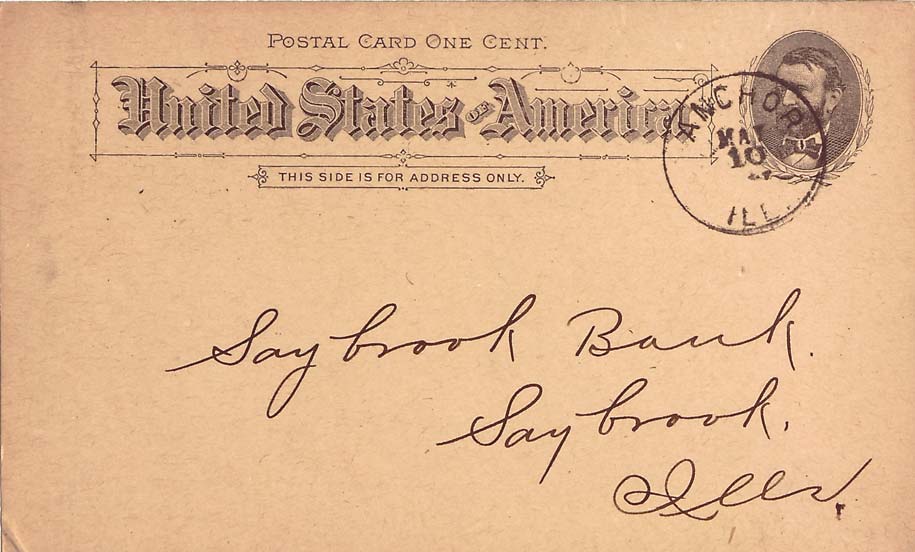 POSTAL CARD ONE CENT.
United States OF America
THIS SIDE IS FOR ADDRESS ONLY.
ANCHOR
MAY
10
ILL.
Saybrook Bank.
Saybrook.
Ills.